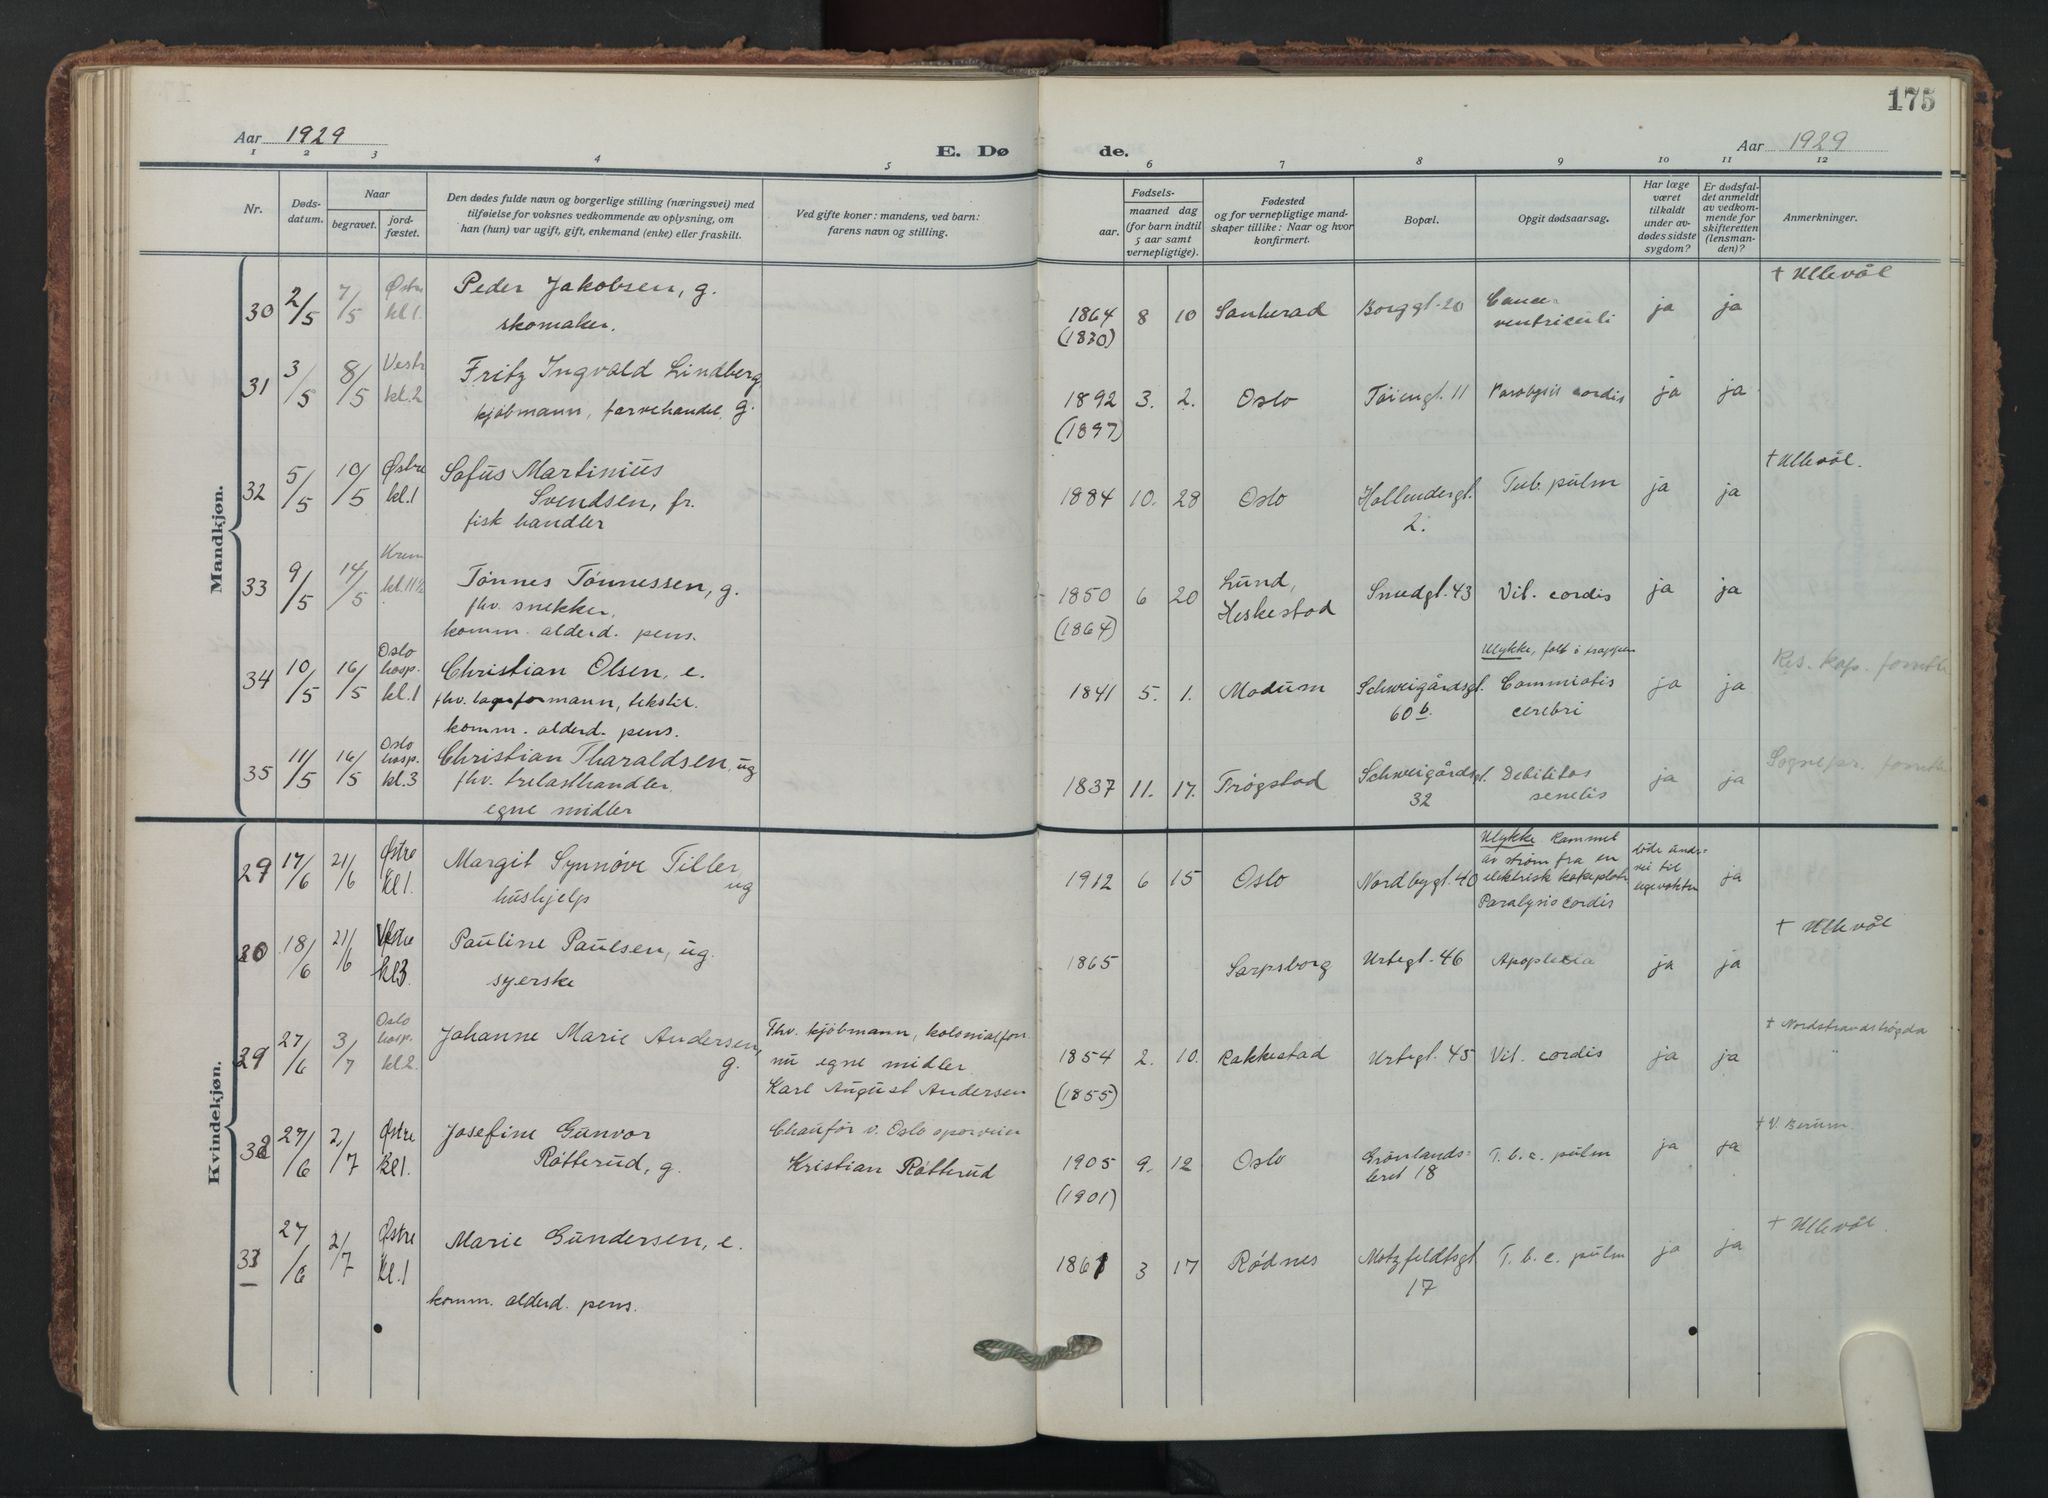 175
Aar 1929
E. Dø de.
Aar 1929
1 2 3 4 5 6 7 8 9 10 11 12
Nr.
Døds-
datum.
Naar
begravet.
jord-
fæstet.
Den dødes fulde navn og borgerlige stilling (næringsvei) med
tilføielse for voksnes vedkommende av oplysning, om
han (hun) var ugift, gift, enkemand (enke) eller fraskilt.
Ved gifte koner: mandens, ved barn:
farens navn og stilling.
Fødsels-
aar.
maaned dag
(for barn indtil
5 aar samt
vernepligtige).
Fødested
og for vernepligtige mand-
skaper tillike: Naar og hvor
konfirmert.
Bopæl.
Opgit dødsaarsag.
Har læge
været
tilkaldt
under av-
dødes sidste
sygdom?
Er dødsfal-
det anmeldt
av vedkom-
mende for
skifteretten
(lensman-
den)?
Anmerkninger.
Mandkjøn.
30 2/5 7/5 Østre kl 1.
Peder Jakobsen, g.
skomaker.
1864 8 10 Sauherad Borggt. 20 Cancer
ventriculi ja ja † Ullevål
(1830)
31 3/5 8/5 Vestr kl. 2
Fritz Ingvald Lindberg
kjøbmann, farvehandel, g.
1892 3. 2. Oslo Tøiengt. 11 Paralysis cordis ja ja
(1897)
32 5/5 10/5 Østre kl. 1
Sofus Martinius
Svendsen, fr.
fisk handler
1884 10. 28 Oslo Hollendergt.
2. Tub. pulm ja ja † Ullevål.
33 9/5 14/5 Krem kl. 11½
Tønnes Tønnessen, g.
fhv. snekker,
komm. alderd. pens.
1850 6 20 Lund,
Heskestad Smedgt. 43 Vit. cordis ja ja
(1864)
34 10/5 16/5 Oslo hosp. kl. 1
Christian Olsen, e.
fhv. lagerformann, tekstil.
komm. alderd. pens.
1841 5. 1. Modum Schweigårdsgt.
60 b. Ulykke, falt i trappen
cerebri ja ja Res. kap.
35 11/5 16/5 Oslo hosp. kl. 3
Christian Tharaldsen, ug
fhv. trelasthandler,
egne midler
1837 11. 17. Trøgstad Schweigårdsgt.
32 Debilitas
senilis ja ja Sognepr.
Kvindekjøn.
29 17/6 21/6 Østre kl 1.
Margit Synnøve Tiller
ug
hushjelp
1912 6 15 Oslo Nordbygt. 40 Ulykke Rammet
av strøm fra en
elektrisk kokeplate
Paralysis cordis døde under-
vei til
legevakten ja
30 18/6 21/6 Vestre kl 3.
Pauline Paulsen, ug.
syerske
1865 Sarpsborg Urtegt. 46 Apoplexia ja ja † Ullevål
29 27/6 3/7 Oslo hosp. kl 2.
Johanne Marie Andersen,
g.
Fhv. kjøbmann, kolonialforr.
nu egne midler.
Karl August Andersen
1854 2. 10. Rakkestad Urtegt. 45 Vit. cordis ja ja † Nordstrandshøgda
(1855)
32 27/6 2/7 Østre kl 1.
Josefine Gunvor
Røtterud, g.
Chaufør v. Oslo sporveier
Kristian Røtterud
1905 9. 12 Oslo Grønlands-
leret 18 T. b. c. pulm ja ja † V. Bærum.
(1901)
33 27/6 2/7 Østre kl. 1
Marie Gundersen, e.
komm. alderd. pens.
1861 3 17 Rødnes Motzfeldtsgt.
17 T. b. c. pulm ja ja † Ullevål.